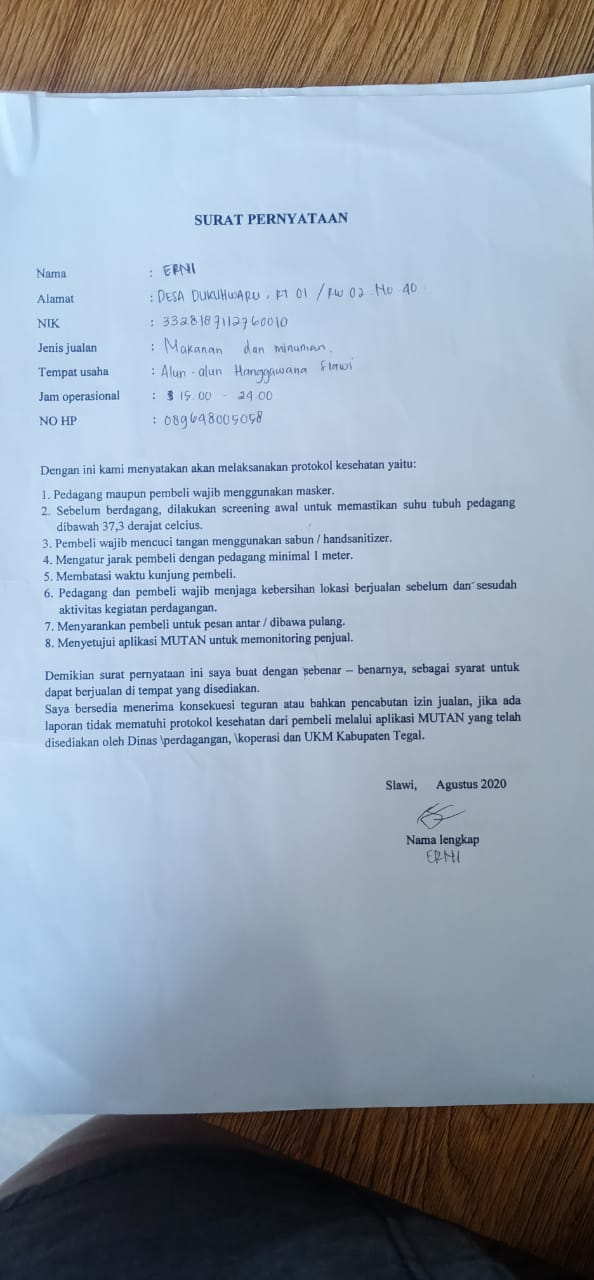 SURAT PERNYATAAN
Nama : ERNI
Alamat : DESA DUKUHWARU, RT 01 / RW 02 . No 40
NIK : 3328187112760010
Jenis jualan : Makanan dan minuman.
Tempat usaha : Alun - alun Hanggawana Slawi
Jam operasional : 15.00 - 24.00
NO HP : 089648005058
Dengan ini kami menyatakan akan melaksanakan protokol kesehatan yaitu:
1. Pedagang maupun pembeli wajib menggunakan masker.
2. Sebelum berdagang, dilakukan screening awal untuk memastikan suhu tubuh pedagang
dibawah 37,3 derajat celcius.
3. Pembeli wajib mencuci tangan menggunakan sabun / handsanitizer.
4. Mengatur jarak pembeli dengan pedagang minimal 1 meter.
5. Membatasi waktu kunjung pembeli.
6. Pedagang dan pembeli wajib menjaga kebersihan lokasi berjualan sebelum dan sesudah
aktivitas kegiatan perdagangan.
7. Menyarankan pembeli untuk pesan antar / dibawa pulang.
8. Menyetujui aplikasi MUTAN untuk memonitoring penjual.
Demikian surat pernyataan ini saya buat dengan sebenar – benarnya, sebagai syarat untuk
dapat berjualan di tempat yang disediakan.
Saya bersedia menerima konsekuesi teguran atau bahkan pencabutan izin jualan, jika ada
laporan tidak mematuhi protokol kesehatan dari pembeli melalui aplikasi MUTAN yang telah
disediakan oleh Dinas \perdagangan, \koperasi dan UKM Kabupaten Tegal.
Slawi, Agustus 2020
Nama lengkap
ERNI